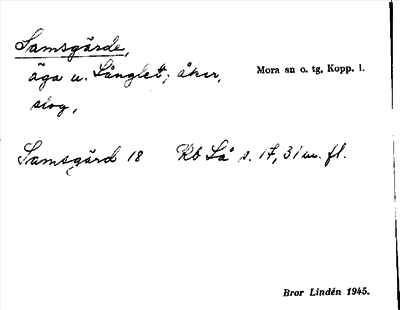 Samsgärde,
äga u. Långlet; åker,
slog,
Mora sn o. tg, Kopp. l.
Samsgärd 18 Rb Så s. 17, 31 m. fl.
Bror Lindén 1945.